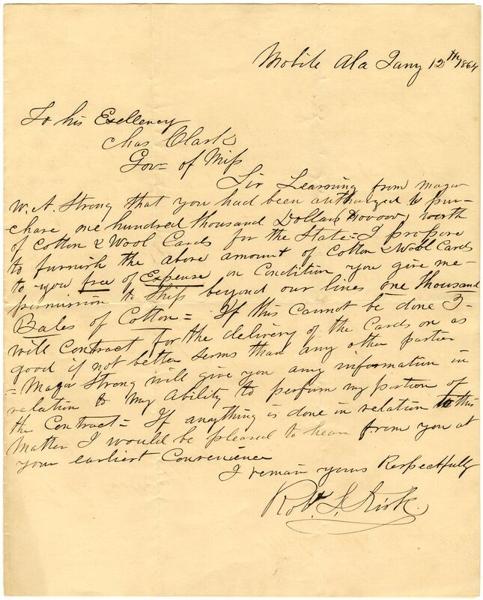 Mobile Ala Jany 12th 1864
To his Exellency
Chas Clark
Gov= of Miss
Sir Learning from Major
W. A. Strong that you had been authorized to pur-
chase one hundred thousand Dollars worth
of Cotton & Wool Cards for the State= I propose
to furnish the above amount of Cotton & Wool Cards
to you free of Expense on Condition you give me
permission to Ship beyond our lines one thousand
Bales of Cotton= If this cannot be done I-
will Contract for the delivery of the Cards on as
good if not better terms than any other parties
- Major Strong will give you any information in
relation to my Ability to perform my portion of
the Contract= If anything is done in relation to this
matter I would be pleased to hear from you at
your earliest Convenience
I remain yours Respectfully
Robt. S. Kirk